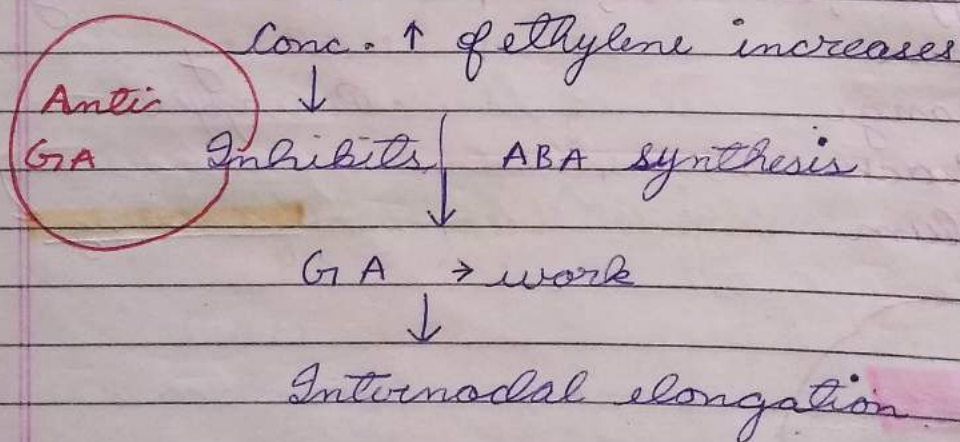 Conc. ↑ of ethylene increases
↓
Anti
GA Inhibits ↓ ABA synthesis
GA → work
↓
Internodal elongation